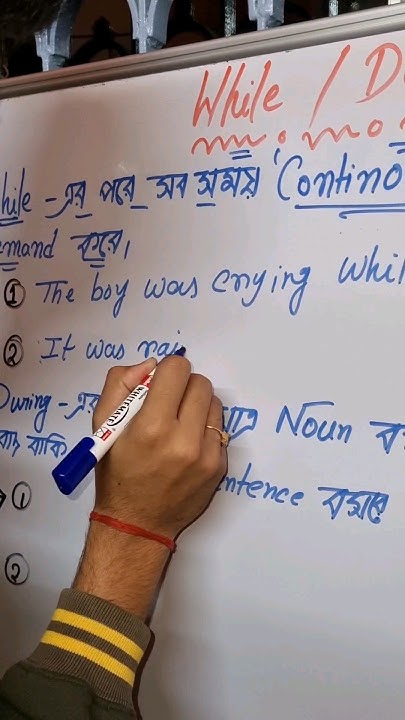 While / D
hile - এর পরে সব সময় Contino
emand করে।
① The boy was crying Whil
② It was rai
During - এর Noun ব
বাকি
① entence বসবে
②